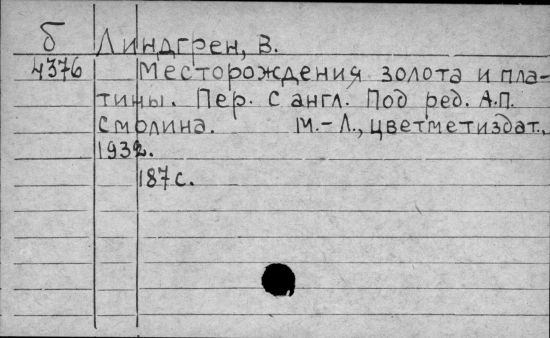 б Линдгрен, В.
4376 Месторождения золота и пла-
тины. Пер. с англ. Под ред. А.П.
Смолина. М.-Л., цветметиздат.,
1932.
187 с.